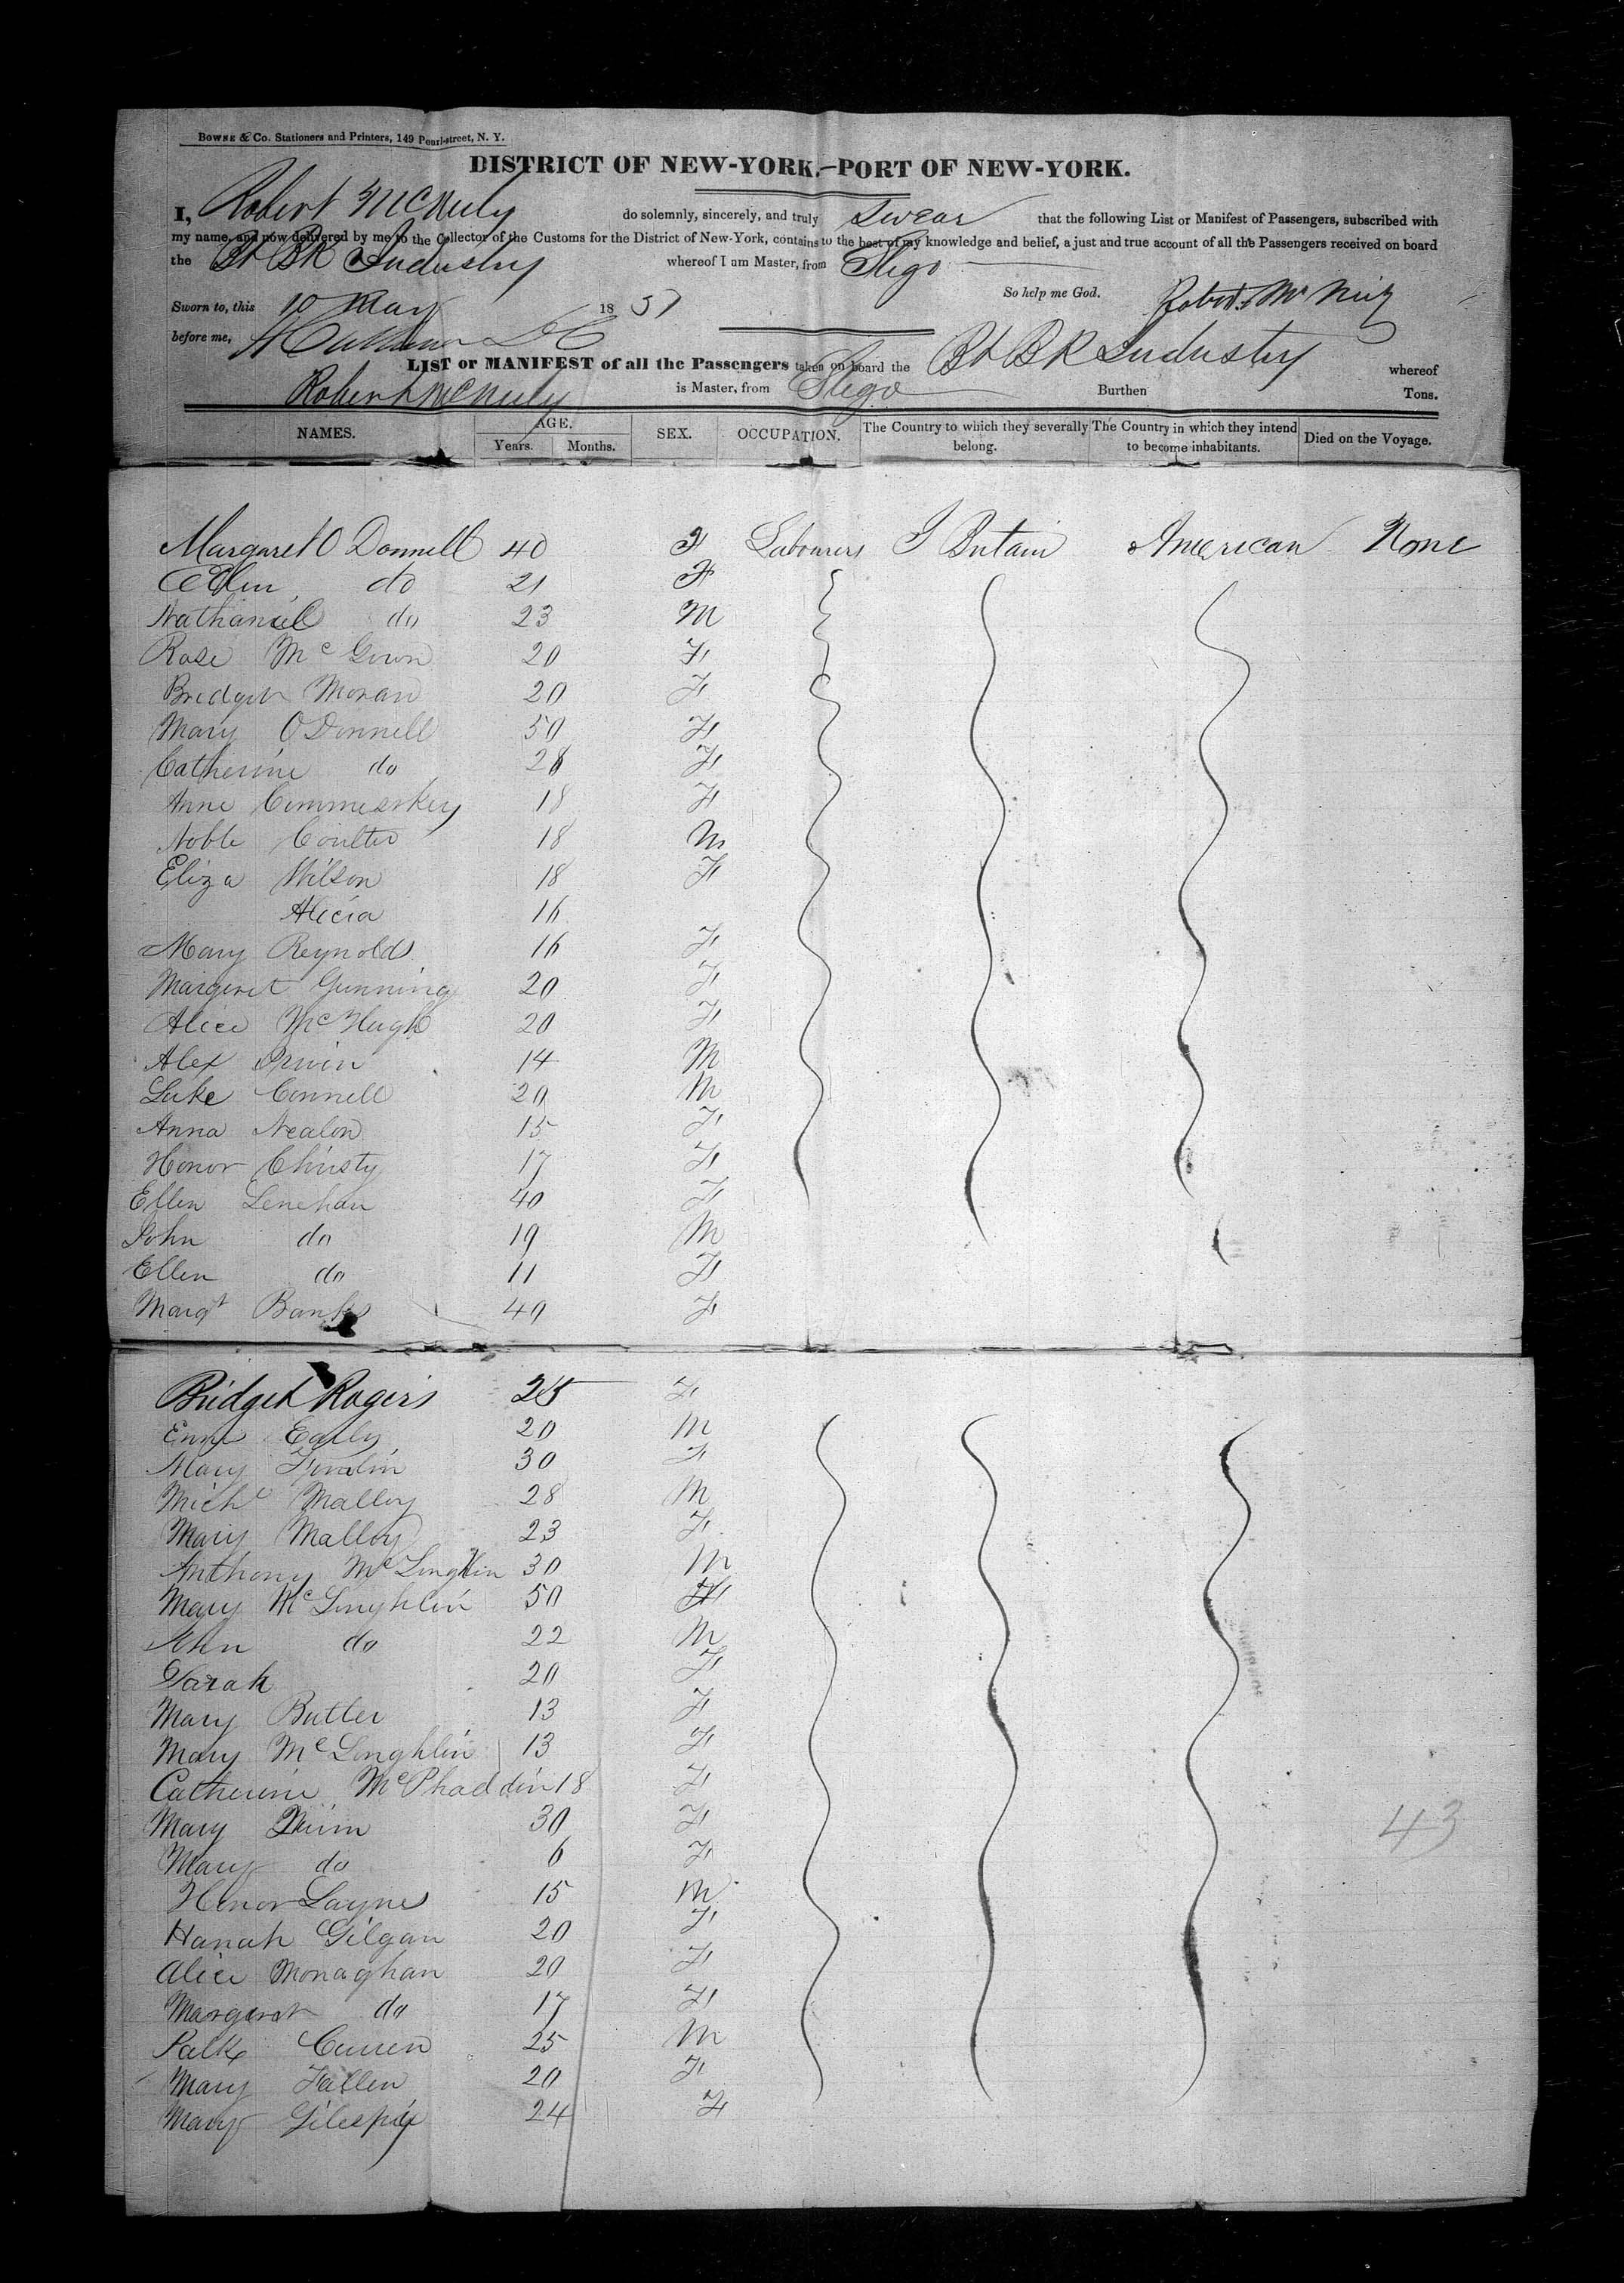 BOWNE & Co. Stationers and Printers, 149 Pearl-street, N. Y.
DISTRICT OF NEW-YORK.—PORT OF NEW-YORK.
I, Robert McNuly do solemnly, sincerely, and truly Swear that the following List or Manifest of Passengers, subscribed with
my name, and now delivered by me to the Collector of the Customs for the District of New-York, contains to the best of my knowledge and belief, a just and true account of all the Passengers received on board
the Bt BK Industry whereof I am Master, from Sligo
So help me God.
Sworn to, this 10 May 1851
before me,
LIST or MANIFEST of all the Passengers taken on board the Bt BK Industry whereof
Robert McNuly is Master, from Sligo Burthen Tons.
NAMES. AGE. Years. Months. SEX. OCCUPATION. The Country to which they severally belong. The Country in which they intend to become inhabitants. Died on the Voyage.
Margaret O Donnell 40 F Labourers Britain American None
Ellen do 21 F
Nathaniel do 23 M
Rose McGown 20 F
Bridget Moran 20 F
Mary O Donnell 50 F
Catherine do 28 F
Anne Commeskey 18 F
Noble Coulter 18 M
Eliza Wilson 18 F
Alicia 16
Mary Reynolds 16 F
Margeret Gunning 20 F
Alice McHugh 20 F
Alex Irwin 14 M
Luke Connell 20 M
Anna Nealon 15 F
Honor Christy 17 F
Ellen Lenehan 40 F
John do 19 M
Ellen do 11 F
Margt Banks 40 F
Bridget Rogers 25 F
Early 20 M
Mary 30 F
Michl Malloy 28 M
Mary Malloy 23 F
Anthony McLoughlin 30 M
Mary McLoughlin 50 F
John do 22 M
Sarah 20 F
Mary Butler 13 F
Mary McLoughlin 13 F
Catherine McPhaddin 18 F
Mary Quinn 30 F
Mary do 6 F
Honor Layne 15 M
Hanah Gilgan 20 F
Alice Monaghan 20 F
Margaret do 17 F
Patk Curren 25 M
Mary Fallen 20 F
Mary Gilespie 24 F
43